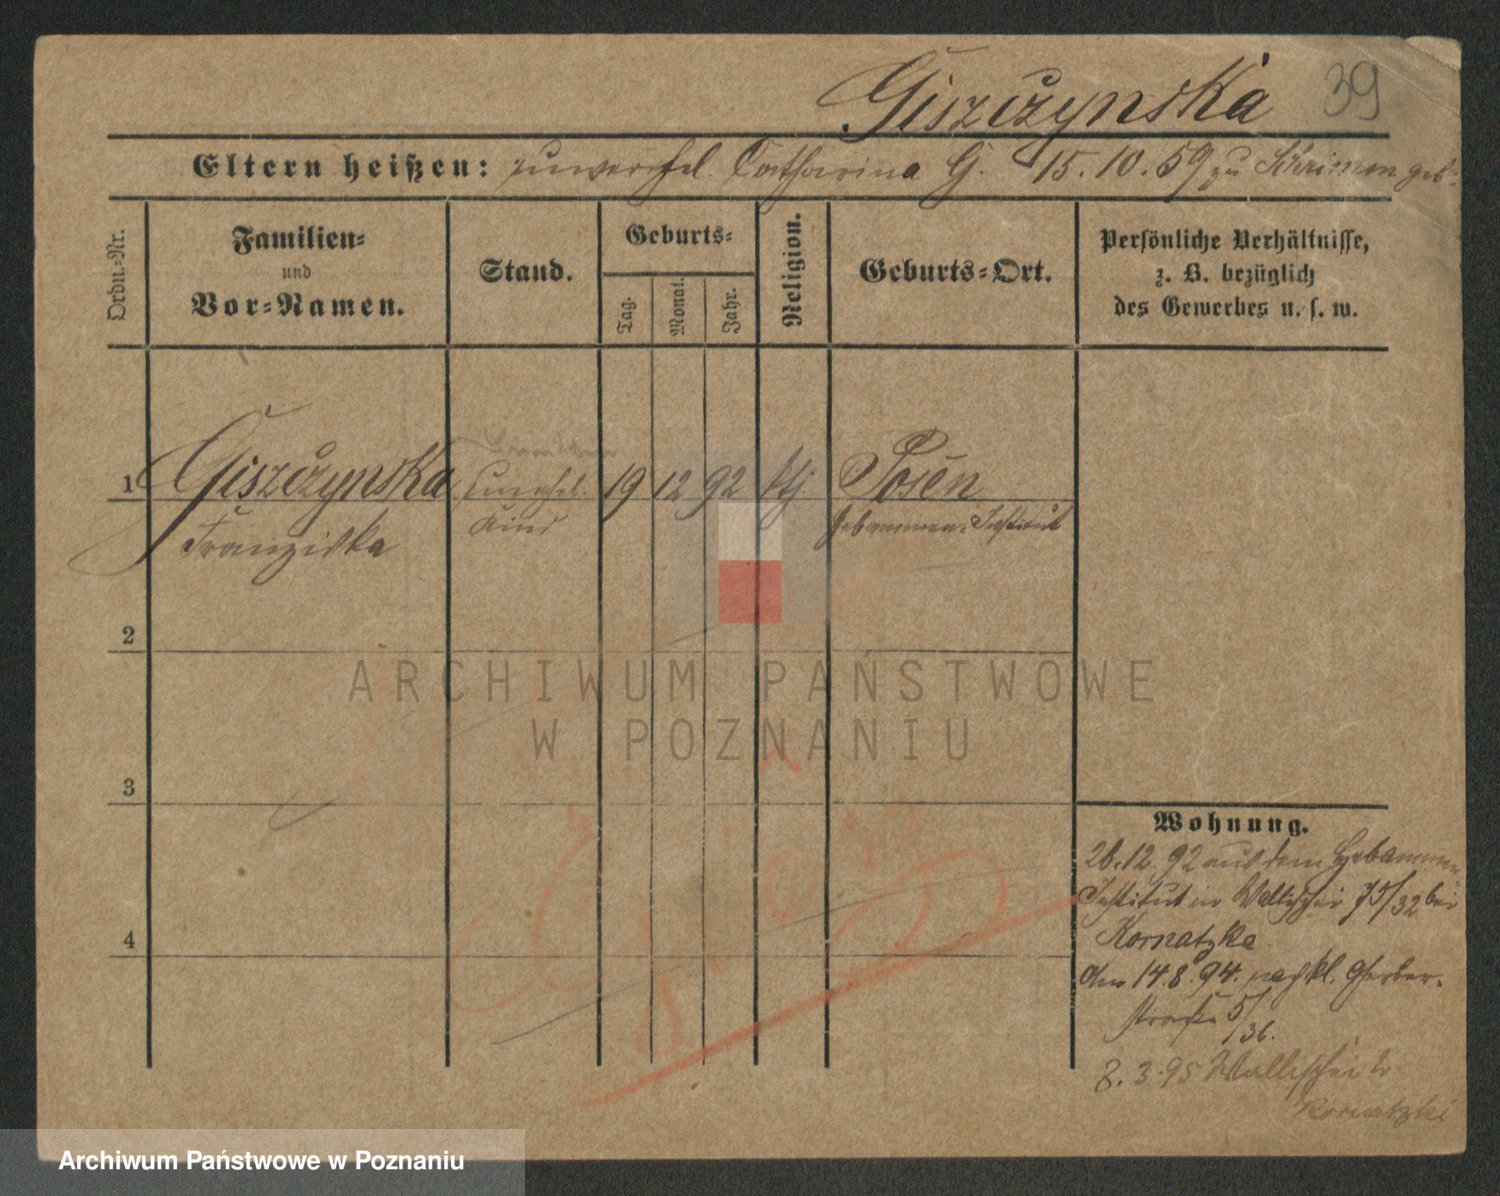 Giszczynska 39
Eltern heißen: unverehel. Catharina G. 15.10.59 zu Schrimm geb.
Ordn.-Nr.
Familien-
und
Vor-Namen.
Stand.
Geburts-
Tag.
Monat.
Jahr.
Religion.
Geburts-Ort.
Persönliche Verhältnisse,
z. B. bezüglich
des Gewerbes u. s. w.
1 Giszczynska unehel. 19 12 92 kth Posen
Franziska Kind Hebammen-Institut
2
3
4
Wohnung.
26.12.92 aus dem Hebammen
Institut in Wallischei 75/32 bei
Kornatzka
Am 14.8.94. nach kl. Gerber-
straße 5/36.
8.3.95 Wallischei
Kornatzki
ARCHIWUM PAŃSTWOWE
W POZNANIU
Archiwum Państwowe w Poznaniu